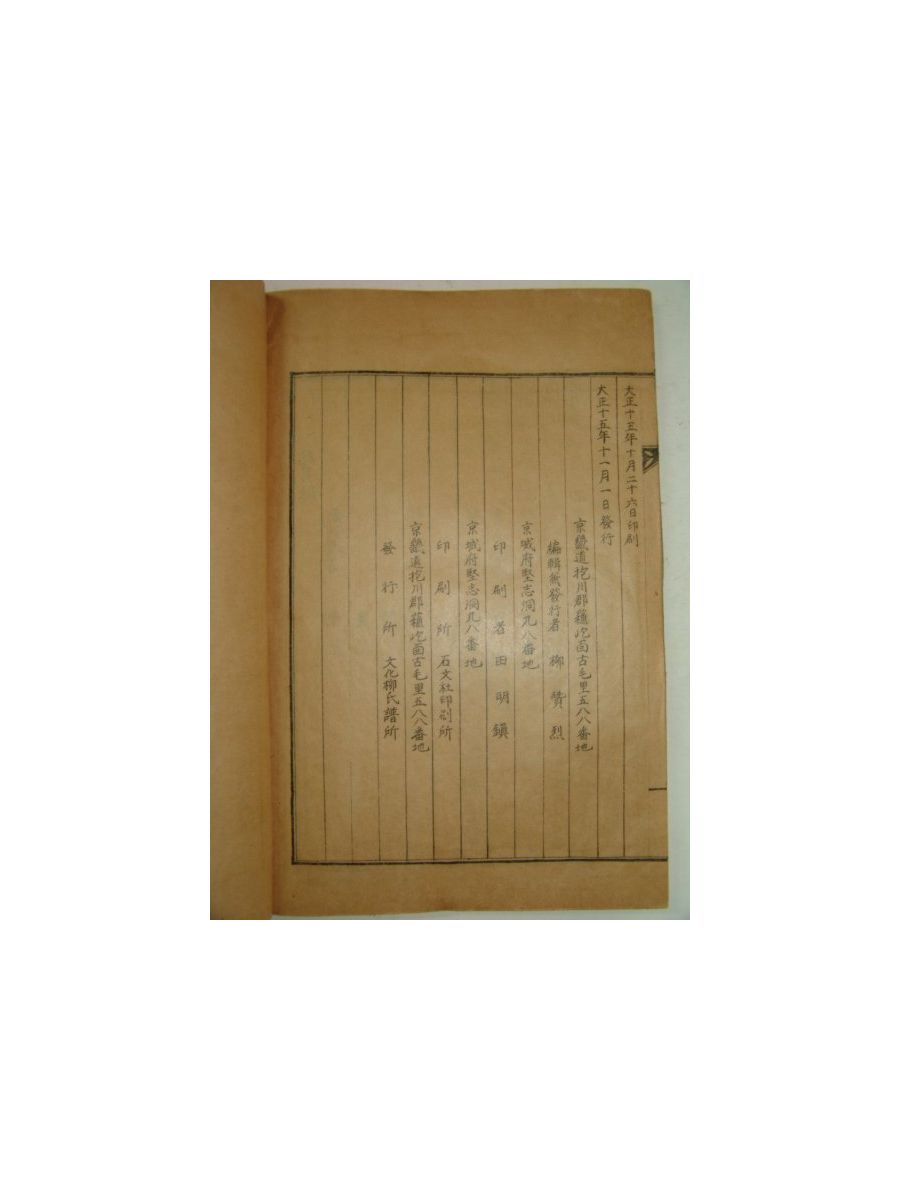 大正十五年十月二十六日印刷
大正十五年十一月一日發行
京畿道抱川郡蘇屹面古毛里五八八番地
編輯兼發行者 柳贊烈
京城府堅志洞九八番地
印刷者 田明鎭
京城府堅志洞九八番地
印刷所 石文社印刷所
京畿道抱川郡蘇屹面古毛里五八八番地
發行所 文化柳氏譜所